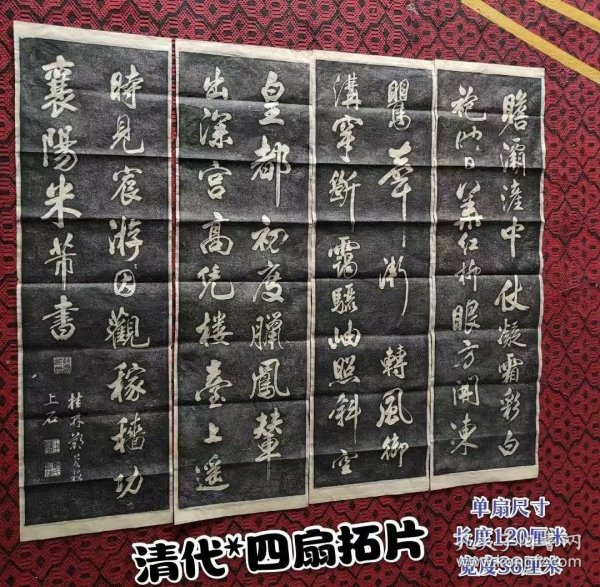 瞻灞滻中仗凝霜彩白
袍映日華紅柳眼方開凍
鸎聲漸轉風御
溝穿斷靄驪岫照斜空
皇都初度臘鳳輦
出深宮高凭樓臺上遥
時見宸游因觀稼穡功
襄陽米芾書
桂林鄧
上石
清代*四扇拓片
单扇尺寸
长度120厘米
宽度36厘米